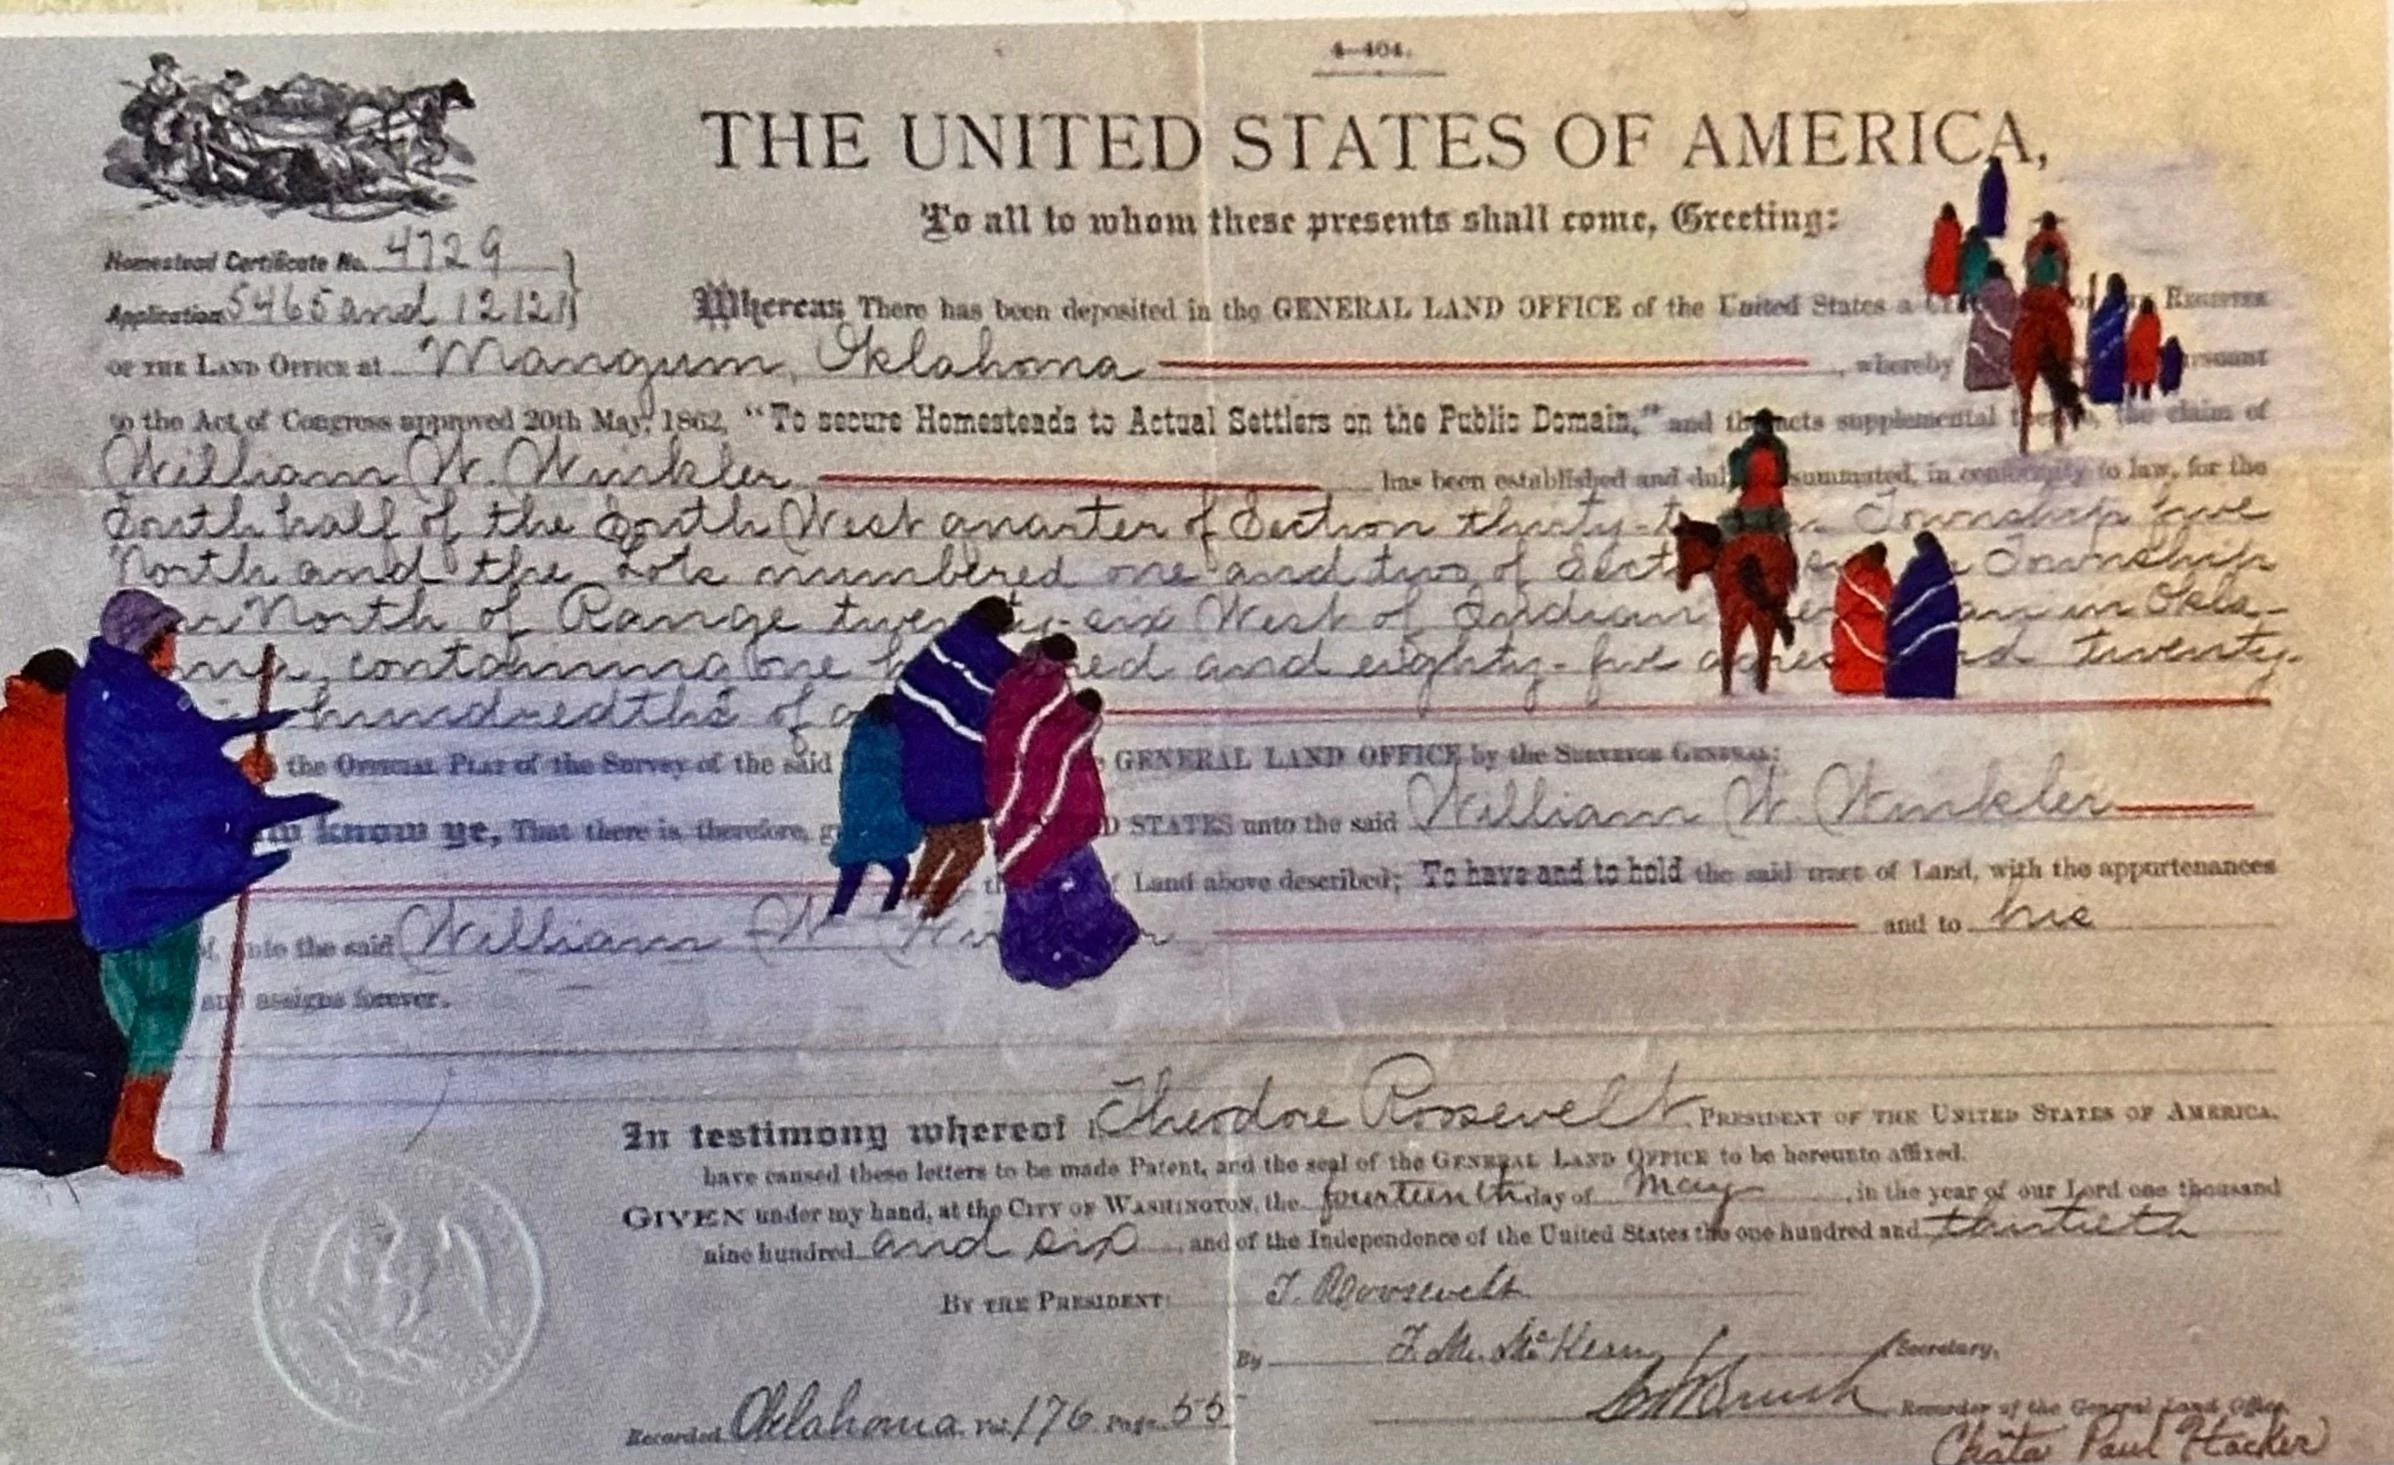 4-404.
THE UNITED STATES OF AMERICA,
To all to whom these presents shall come, Greeting:
Homestead Certificate No. 4729
Application 5465 and 12121
Whereas There has been deposited in the GENERAL LAND OFFICE of the United States a REGISTER
OF THE LAND OFFICE at Mangum, Oklahoma, whereby
to the Act of Congress approved 20th May, 1862, "To secure Homesteads to Actual Settlers on the Public Domain," and the acts supplemental the claim of
William W. Winkler has been established and in conformity to law, for the
South half of the South West quarter of Section in Township five
North and the Lots numbered one and two of Township
North of Range twenty-six West of Indian in Okla-
containing one and eighty-five acres and twenty-
hundredths of
the OFFICIAL PLAT of the Survey of the said GENERAL LAND OFFICE by the SURVEYOR GENERAL:
know ye, That there is, therefore, STATES unto the said William W. Winkler
Land above described; To have and to hold the said tract of Land, with the appurtenances
unto the said William W. and to his
and assigns forever.
In testimony whereof I, Theodore Roosevelt, PRESIDENT OF THE UNITED STATES OF AMERICA,
have caused these letters to be made Patent, and the seal of the GENERAL LAND OFFICE to be hereunto affixed.
GIVEN under my hand, at the CITY OF WASHINGTON, the fourteenth day of May, in the year of our Lord one thousand
nine hundred and six, and of the Independence of the United States the one hundred and thirtieth
BY THE PRESIDENT: T. Roosevelt
By F. M. McKean, Secretary,
Recorder of the General Land Office.
Recorded Oklahoma Vol. 176 Page 55
Chata Paul Hacker